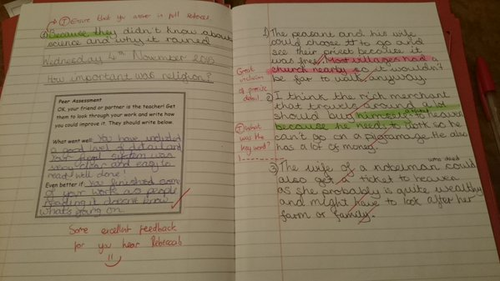 ① Ensure that you answer in full sentences
Because they didn't know about
science and why it rained
Wednesday 4th November 2015
How important was religion?
Peer Assessment
OK, your friend or partner is the teacher! Get
them to look through your work and write how
you could improve it. They should write below.
What went well: You have included
a good level of detail and
your
was
very clear and easy to
read well done!
Even better if: You finished some
of your work as people
reading it doesn't know
what's going on.
Some excellent feedback
for you here Rebecca!
1) The peasant and his wife
could choose to go and
see their priest because it
was free. Most villages had a
church nearby so it wouldn't
be far to walk anyway.
Great
inclusion
of precise
detail
2) I think the rich merchant
that travels around a lot
should buy his way to heaven
because he needs to work so he
can't go on a pilgrimage. He also
has a lot of money.
① What
was the
3) The wife of a nobleman could
also get a ticket to heaven
as she probably is quite wealthy
and might have to look after her
farm or family.